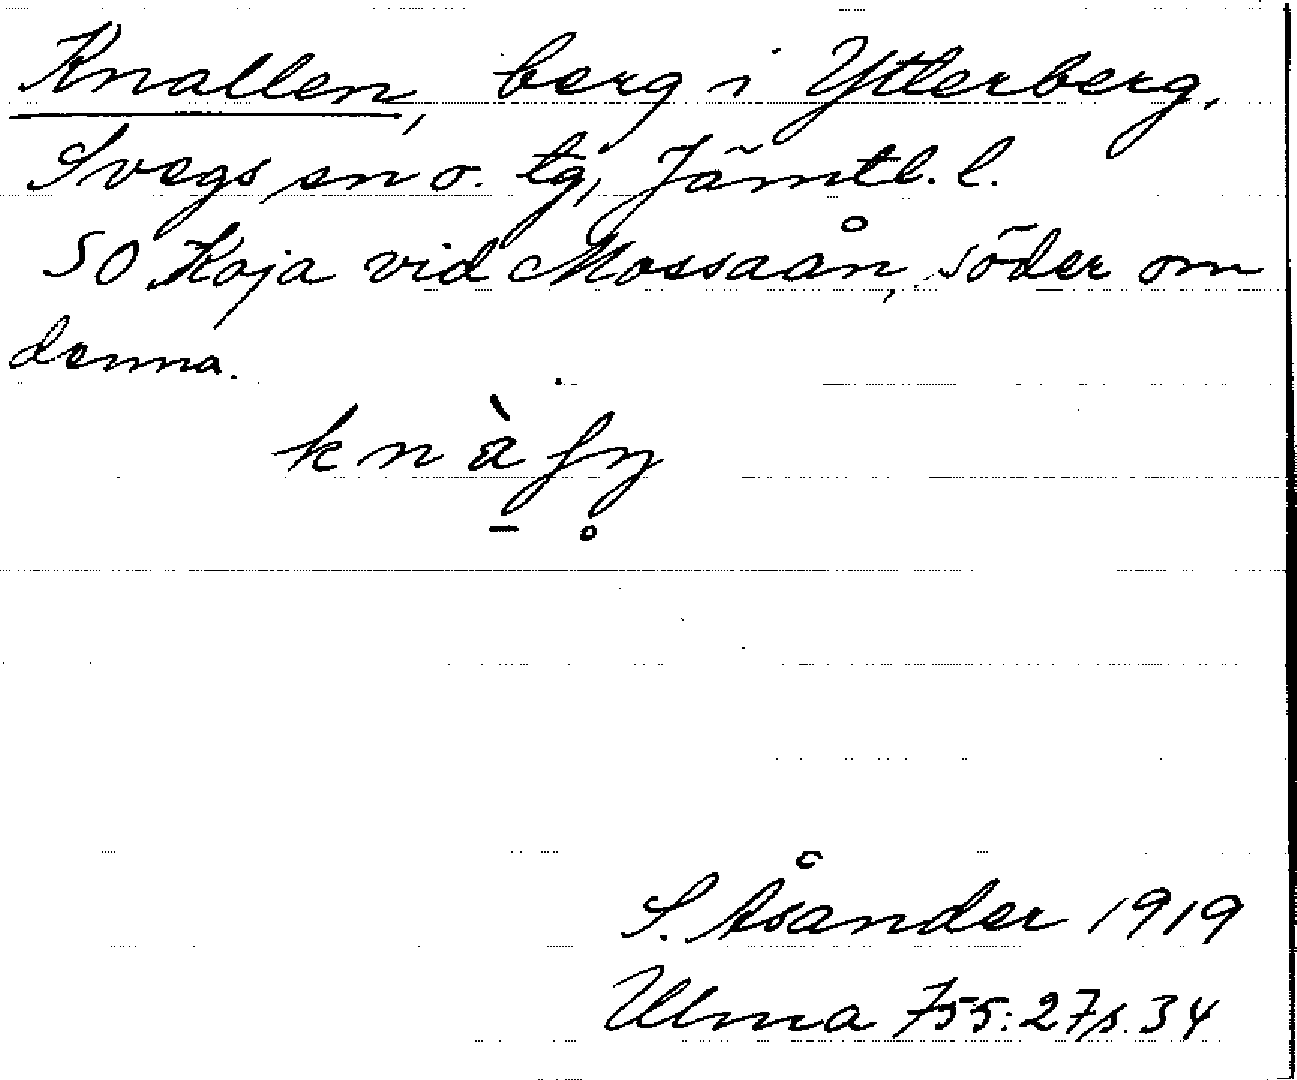 Knallen, berg i Ytterberg,
Svegs sn o. tg, Jämtl. l.
SO Koja vid Mossaån, söder om
denna.
S. Åsander 1919
Ulma 755:27 s. 34